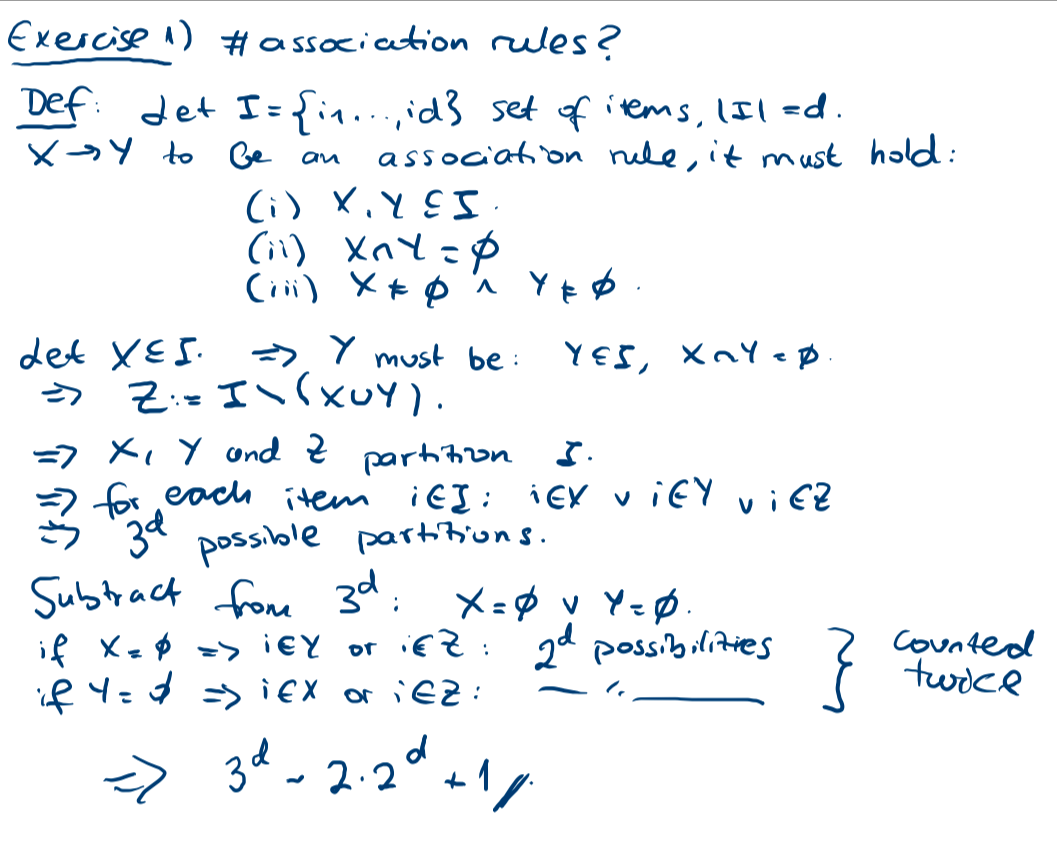 Exercise 1) # association rules?
Def: Let I = {i1...,id} set of items, |I| = d.
X → Y to be an association rule, it must hold:
(i) X, Y ⊆ I.
(ii) X ∩ Y = ∅
(iii) X ≠ ∅ ∧ Y ≠ ∅.
Let X ⊆ I. ⇒ Y must be: Y ⊆ I, X ∩ Y = ∅.
⇒ Z := I \ (X ∪ Y).
⇒ X, Y and Z partition I.
⇒ for each item i ∈ I: i ∈ X ∨ i ∈ Y ∨ i ∈ Z
⇒ 3^d possible partitions.
Subtract from 3^d: X = ∅ ∨ Y = ∅.
if X = ∅ ⇒ i ∈ Y or i ∈ Z: 2^d possibilities } counted twice
if Y = ∅ ⇒ i ∈ X or i ∈ Z: — " —
⇒ 3^d - 2·2^d + 1